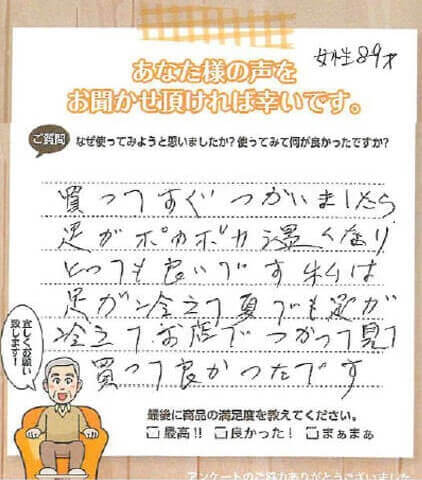 女性89才
あなた様の声を
お聞かせ頂ければ幸いです。
ご質問
なぜ使ってみようと思いましたか?使ってみて何が良かったですか?
買ってすぐつかいましたら
足がポカポカ温く成り
とっても良いです 私は
足が冷えて夏でも足が
冷えてお店でつかって見て
買って良かったです
宜しくお願い
致します!
最後に商品の満足度を教えてください。
最高!! 良かった! まぁまぁ
アンケートのご協力ありがとうございました